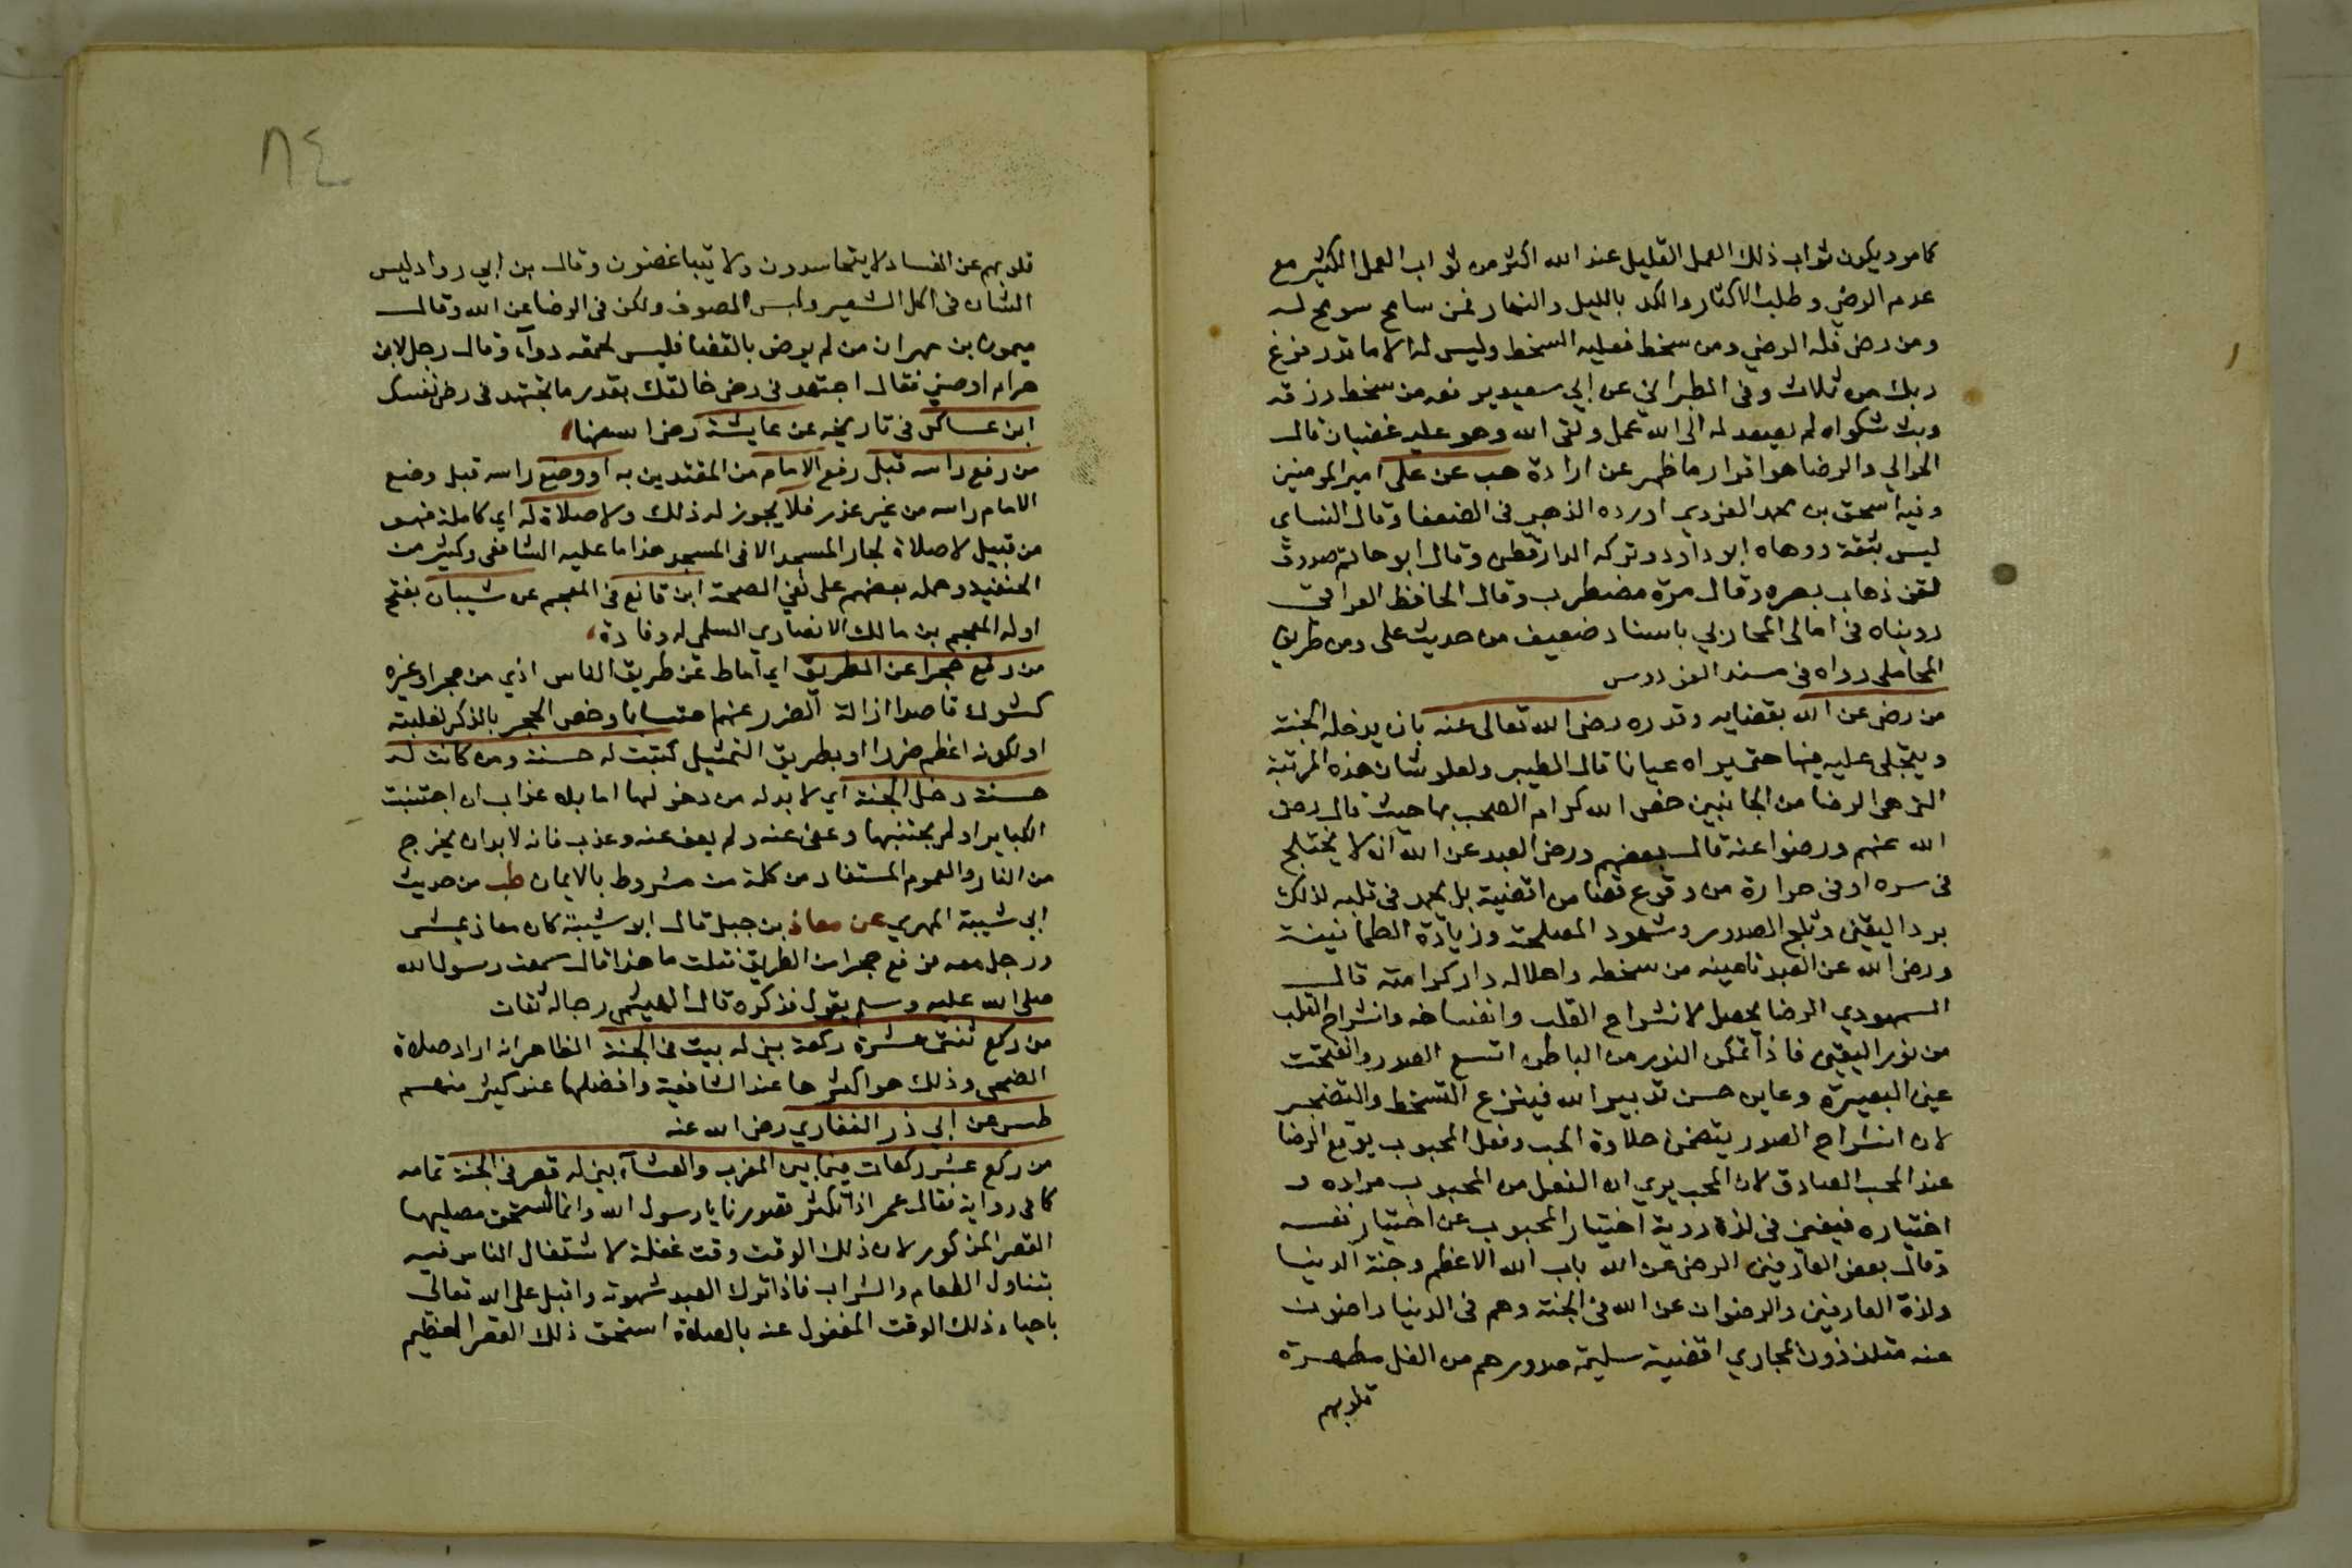 كما مر ويكون ثواب ذلك العمل القليل عند الله اكثر من ثواب العمل الكثير مع
عدم الرضي وطلب الاكثار والكد بالليل والنهار فمن سامح سومح له
ومن رضي فله الرضي ومن سخط فعليه السخط وليس له الا ما قدر فرغ
ربك من ثلاث وفي الطبراني عن ابي سعيد يرفعه من سخط رزقه
وبث شكواه لم يصعد له الى الله عمل ولقي الله وهو عليه غضبان قال
الحرالي والرضا هو اقرار ما ظهر عن ارادة هب عن علي امير المومنين
وفيه اسحق بن محمد الفروي اورده الذهبي في الضعفا وقال النساي
ليس بثقة ووهاه ابو داود وتركه الدارقطني وقال ابو حاتم صدوق
لقن ذهاب بصره وقال مرة مضطرب وقال الحافظ العراقي
رويناه في امالي المحاملي باسناد ضعيف من حديث علي ومن طريق
المحاملي رواه في مسند الفردوس
من رضي عن الله بقضايه وقدره رضي الله تعالى عنه بان يدخله الجنة
ويتجلى عليه فيها حتى يراه عيانا قال الطيبي ولعلو شان هذه المرتبة
التي هي الرضا من الجانبين خص الله كرام الصحب بها حيث قال رضي
الله عنهم ورضوا عنه قال بعضهم ورضي العبد عن الله ان لا يختلج
في سره ادنى حرارة من وقوع قضا من اقضية بل يجد في قلبه لذلك
برد اليقين وثلج الصدر وشهود المصلحة وزيادة الطمانينة
ورضي الله عن العبد تامينه من سخطه واحلاله دار كرامته قال
السهروردي الرضا يحصل لانشراح القلب وانفساخه وانشراح القلب
من نور اليقين فاذا تمكن النور من الباطن اتسع الصدر وانفتحت
عين البصيرة وعاين حسن تدبير الله فينزع التسخط والتضجر
لان انشراح الصدر يتضمن حلاوة الحب وفعل المحبوب يوقع الرضا
عند المحب الصادق لان المحب يري ان الفعل من المحبوب مراده و
اختياره فيفنى في لذة روية اختيار المحبوب عن اختيار نفسه
وقال بعض العارفين الرضي عن الله باب الله الاعظم وجنة الدنيا
ولذة العارفين والرضوان عن الله في الجنة وهم في الدنيا راضون
عنه متلذذون بمجاري اقضية سليمة صدورهم من الغل مطهرة
قلوبهم
٨٤
قلوبهم عن الفساد لا يتحاسدون ولا يتباغضون وقال بن ابي رواد ليس
الشان في اكل الشعير ولبس الصوف ولكن في الرضا عن الله وقال
ميمون بن مهران من لم يرض بالقضا فليس لحمقه دوآء وقال رجل لابن
حرام اوصني فقال اجتهد في رضي خالقك بقدر ما تجتهد في رضي نفسك
ابن عساكر في تاريخه عن عايشة رضي الله عنها
من رفع راسه قبل رفع الامام من المقتدين به او وضع راسه قبل وضع
الامام راسه من غير عذر فلا يجوز له ذلك ولا صلاة له اي كاملة فهو
من قبيل لا صلاة لجار المسجد الا في المسجد هذا ما عليه الشافعي وكثير من
الحنفية وحمله بعضهم على نفي الصحة ابن قانع في المعجم عن شيبان بفتح
اوله المعجم بن مالك الانصاري السلمي له وفادة
من رفع حجرا عن الطريق اي اماط عن طريق الناس اذي من حجر او غيره
كشوك قاصدا ازالة الضرر عنهم محتسبا وخص الحجر بالذكر لغلبته
او لكونه اعظم ضررا او بطريق التمثيل كتبت له حسنة ومن كانت له
حسنة دخل الجنة اي لا بد له من دخولها اما بلا عذاب ان اجتنبت
الكباير او لم يجتنبها وعفي عنه ولم يعف عنه وعذب فانه لا بد ان يخرج
من النار والعموم المستفاد من كلمة من مشروط بالايمان طب من حديث
ابي شيبة المهري عن معاذ بن جبل قال ابو شيبة كان معاذ يمشي
ورجل معه فرفع حجرا من الطريق فقلت ما هذا قال سمعت رسول الله
صلى الله عليه وسلم يقول فذكره قال الهيثمي رجاله ثقات
من ركع ثنتي عشرة ركعة بني له بيت في الجنة الظاهر انه اراد صلاة
الضحى وذلك هو اكثرها عند الشافعية وافضلها عند كثير منهم
طس عن ابي ذر الغفاري رضي الله عنه
من ركع عشر ركعات فيما بين المغرب والعشآء بني له قصر في الجنة تمامه
كما في رواية فقال عمر اذا تكثر قصورنا يا رسول الله وانما استحق مصليها
القصر المذكور لان ذلك الوقت وقت غفلة لاشتغال الناس فيه
بتناول الطعام والشراب فاذا ترك العبد شهوته واقبل على الله تعالى
باحياء ذلك الوقت المغفول عنه بالصلاة استحق ذلك القصر العظيم